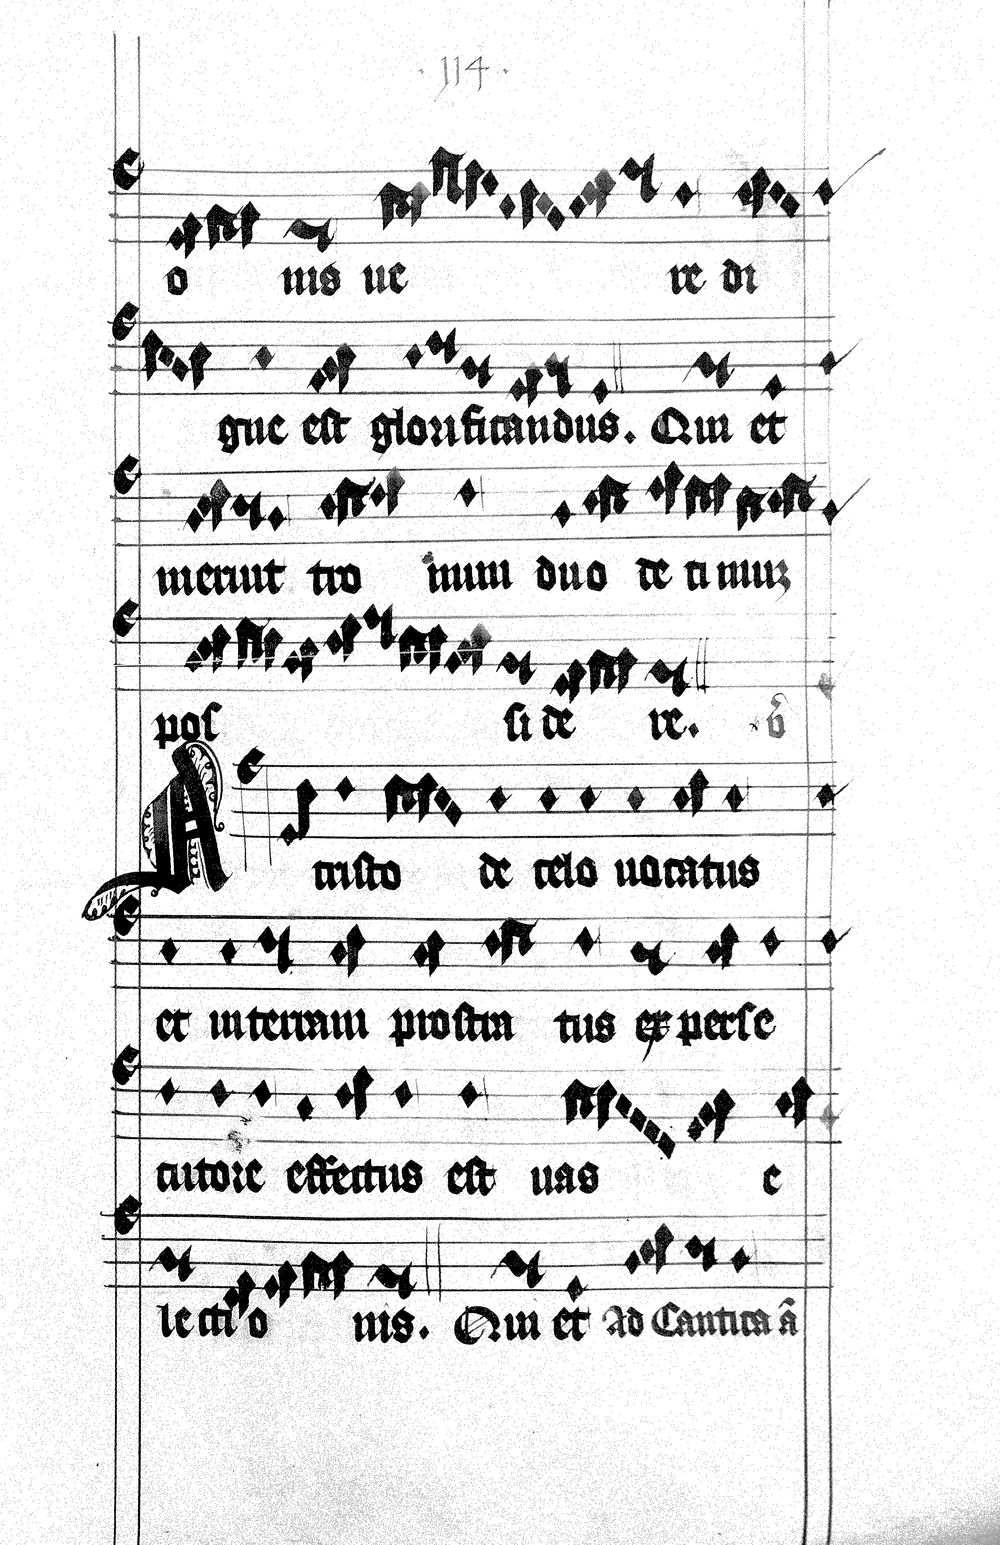 · 114 ·
o nis ue re di
gne est glorificandus. Qui et
meruit tro num duo de ci muz
pos si de re. v̄
A cristo de celo uocatus
et in terram prostra tus ex perse
cutore effectus est uas e
lecti o nis. Qui et Ad Cantica ā